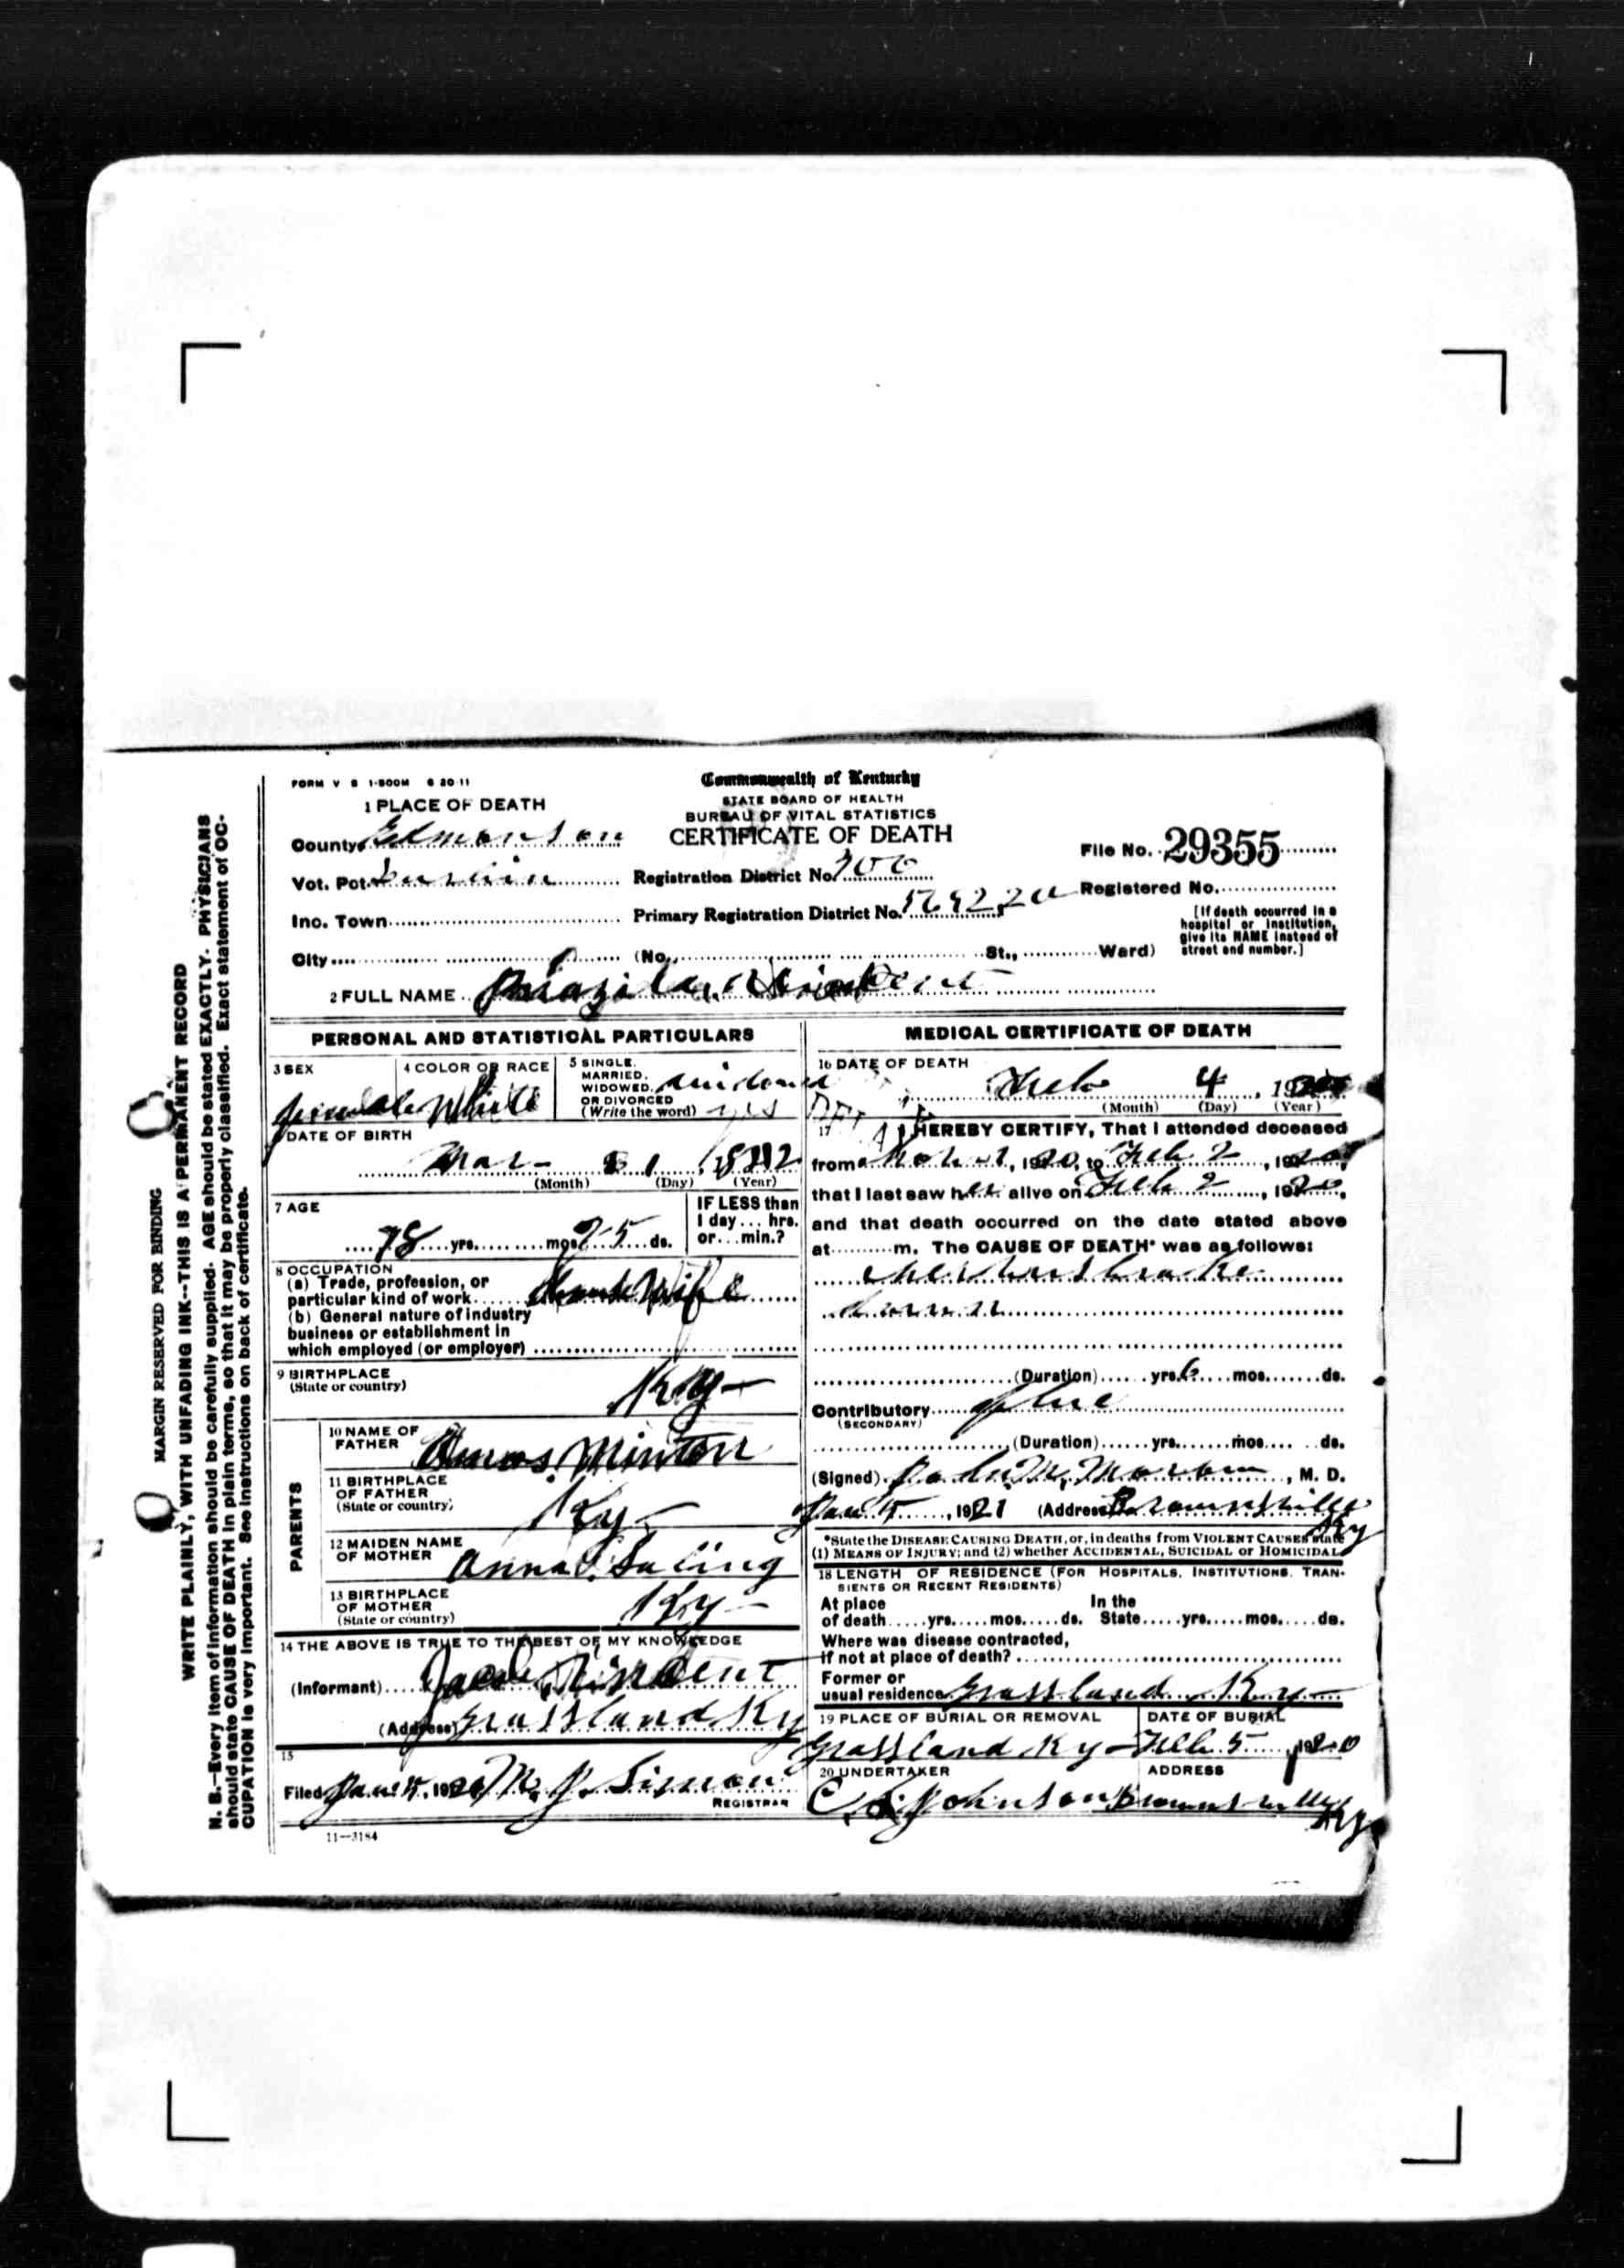 MARGIN RESERVED FOR BINDING
WRITE PLAINLY, WITH UNFADING INK--THIS IS A PERMANENT RECORD
N. B.—Every item of information should be carefully supplied. AGE should be stated EXACTLY. PHYSICIANS
should state CAUSE OF DEATH in plain terms, so that it may be properly classified. Exact statement of OC-
CUPATION is very important. See instructions on back of certificate.
FORM V S 1-500M 6 20-11
Commonwealth of Kentucky
STATE BOARD OF HEALTH
BUREAU OF VITAL STATISTICS
CERTIFICATE OF DEATH
1 PLACE OF DEATH
County Edmonson
File No. 29355
Vot. Pct.
Registration District No.
Registered No.
Inc. Town
Primary Registration District No.
[If death occurred in a
hospital or institution,
give its NAME instead of
street and number.]
City (No. St., Ward)
2 FULL NAME
PERSONAL AND STATISTICAL PARTICULARS
3 SEX
Female
4 COLOR OR RACE
White
5 SINGLE,
MARRIED,
WIDOWED,
OR DIVORCED
(Write the word)
widowed
yes
DATE OF BIRTH
Mar
(Month) (Day) (Year)
7 AGE
78 yrs. mos 25 ds.
IF LESS than
1 day... hrs.
or...min.?
8 OCCUPATION
(a) Trade, profession, or
particular kind of work House Wife
(b) General nature of industry
business or establishment in
which employed (or employer)
9 BIRTHPLACE
(State or country)
Ky—
PARENTS
10 NAME OF
FATHER
Amos Minton
11 BIRTHPLACE
OF FATHER
(State or country)
Ky—
12 MAIDEN NAME
OF MOTHER
Anna Saling
13 BIRTHPLACE
OF MOTHER
(State or country)
Ky—
14 THE ABOVE IS TRUE TO THE BEST OF MY KNOWLEDGE
(Informant) Jacob Vincent
(Address) Grassland Ky
15
Filed M. J. Simon
REGISTRAR
11—3184
MEDICAL CERTIFICATE OF DEATH
16 DATE OF DEATH
Feb 4, 19
(Month) (Day) (Year)
17
I HEREBY CERTIFY, That I attended deceased
from 1920, to Feb 2, 1920,
that I last saw her alive on Feb 2, 1920,
and that death occurred on the date stated above
at m. The CAUSE OF DEATH* was as follows:
down
(Duration) yrs. 6 mos. ds.
Contributory flue
(SECONDARY)
(Duration) yrs. mos. ds.
(Signed) John M., M. D.
1921 (Address) Brownsville
Ky
*State the DISEASE CAUSING DEATH, or, in deaths from VIOLENT CAUSES state
(1) MEANS OF INJURY; and (2) whether ACCIDENTAL, SUICIDAL or HOMICIDAL
18 LENGTH OF RESIDENCE (FOR HOSPITALS, INSTITUTIONS, TRAN-
SIENTS OR RECENT RESIDENTS)
At place In the
of death yrs. mos. ds. State yrs. mos. ds.
Where was disease contracted,
If not at place of death?
Former or
usual residence Grassland Ky—
19 PLACE OF BURIAL OR REMOVAL
Grassland Ky—
DATE OF BURIAL
Feb 5, 1920
20 UNDERTAKER
Johnson
ADDRESS
Brownsville
Ky